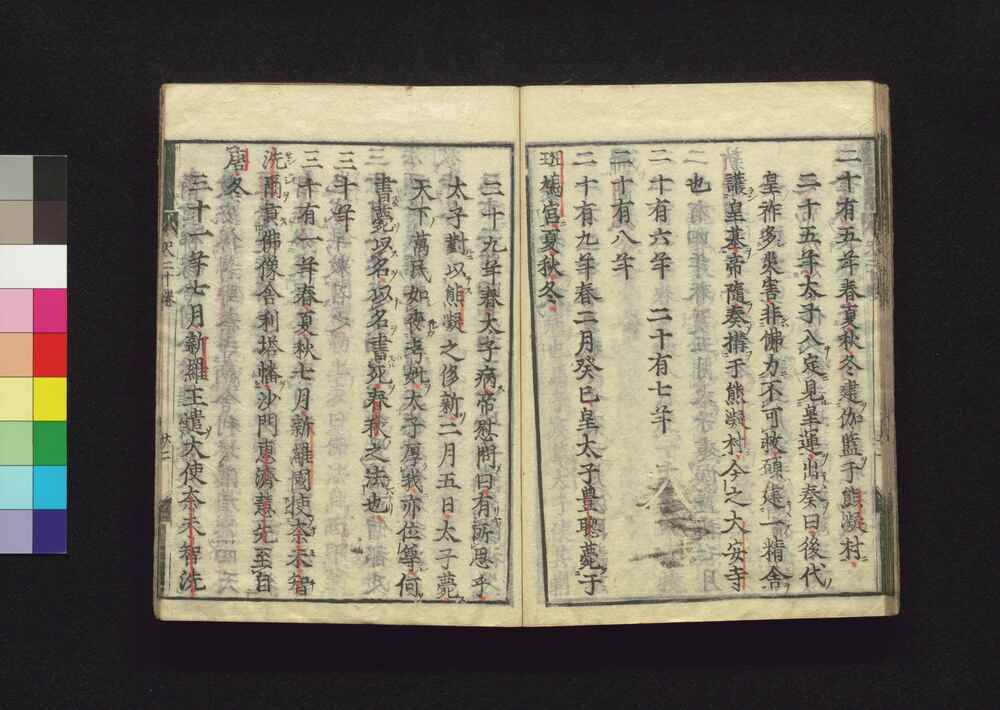 二十有五年春夏秋冬建伽藍于熊凝村
二十五年太子入定見皇運出奏曰後代
皇祚多災害非佛力不可救願建一精舎
護皇基帝隨奏搆于熊凝村今之大安寺
也
二十有六年　二十有七年
二十有八年
二十有九年春二月癸巳皇太子豊聰薨于
斑鳩宮夏秋冬
二十九年春太子病帝慰問曰有所思乎
太子對以熊凝之侈新二月五日太子薨
天下萬民如喪考妣太子厚我亦位等何
書薨以名以名書死春秋之法也
三十年
三十有一年春夏秋七月新羅國使奈末智
洗爾貢佛像舎利塔幡沙門惠濟慧光至自
唐冬
三十一年七月新羅王遣大使奈末智洗